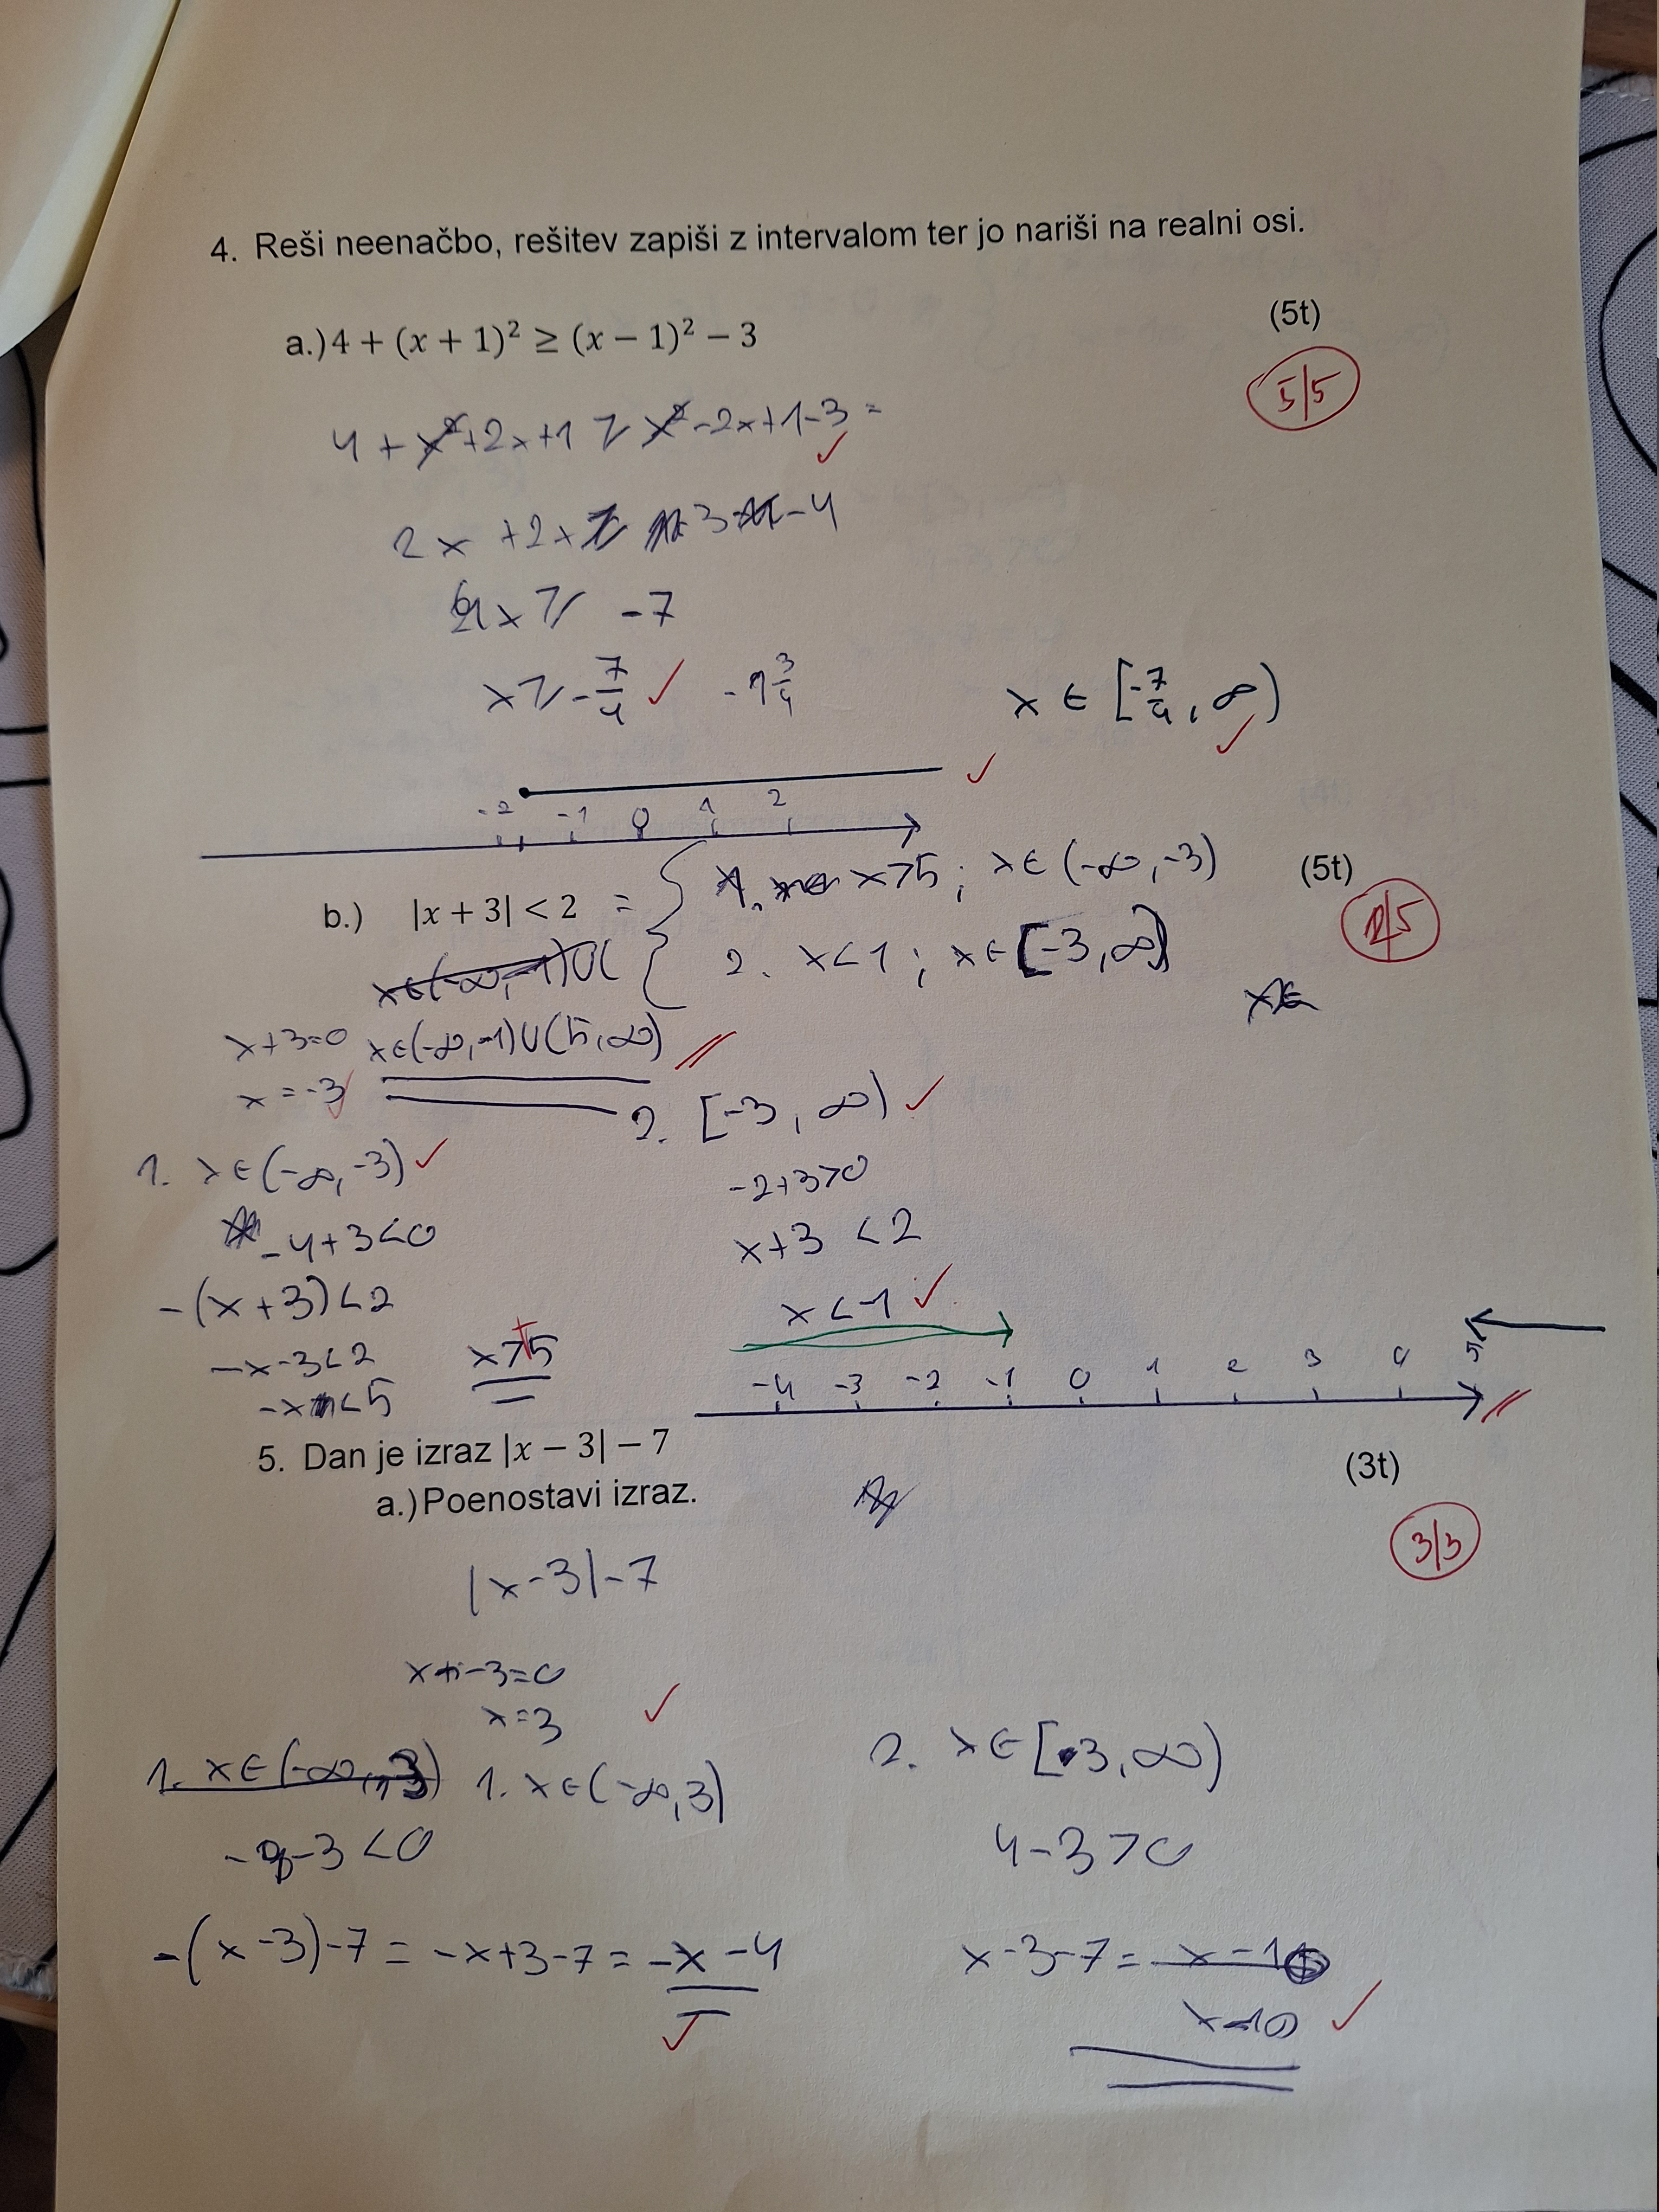 4. Reši neenačbo, rešitev zapiši z intervalom ter jo nariši na realni osi.
a.) 4 + (x + 1)² ≥ (x − 1)² − 3
(5t)
5/5
4 + x² + 2x + 1 ≥ x² - 2x + 1 - 3 =
2x + 2x ≥ -3 - 4
4x ≥ -7
x ≥ -7/4 -1 3/4
x ∈ [-7/4, ∞)
-2 -1 0 1 2
b.) |x + 3| < 2 = { x > 5 ; x ∈ (-∞, -3)
2. x < 1 ; x ∈ [-3, ∞)
(5t)
/5
x ∈ (-∞, -1) ∪ (
x ∈
x + 3 = 0
x ∈ (-∞, -1) ∪ (5, ∞)
x = -3
1. x ∈ (-∞, -3)
-4 + 3 < 0
-(x + 3) < 2
-x - 3 < 2
-x < 5
x > 5
2. [-3, ∞)
-2 + 3 > 0
x + 3 < 2
x < -1
-4 -3 -2 -1 0 1 2 3 4 5
5. Dan je izraz |x − 3| − 7
(3t)
a.) Poenostavi izraz.
3/3
|x - 3| - 7
x - 3 = 0
x = 3
1. x ∈ (-∞, 3)
1. x ∈ (-∞, 3)
-3 < 0
-(x - 3) - 7 = -x + 3 - 7 = -x - 4
2. x ∈ [3, ∞)
4 - 3 > 0
x - 3 - 7 = x - 1
x - 10